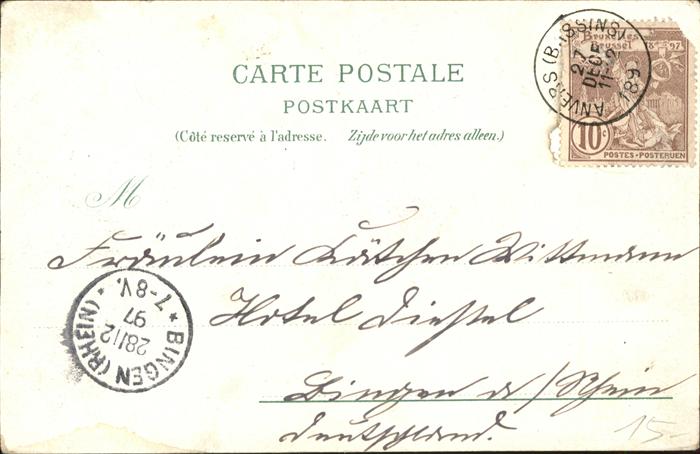 CARTE POSTALE
POSTKAART
(Côté reservé à l'adresse. Zijde voor het adres alleen.)
Bruxelles 18 97
Brussel
10c
POSTES-POSTERIJEN
ANVERS (BASSINS)
27
DECE
11-12
189
M
Fräulein Kätchen Wittmann
Hotel Distel
Bingen a/Rhein
Deutschland.
BINGEN (RHEIN)
28/12
97
7-8V.
15-